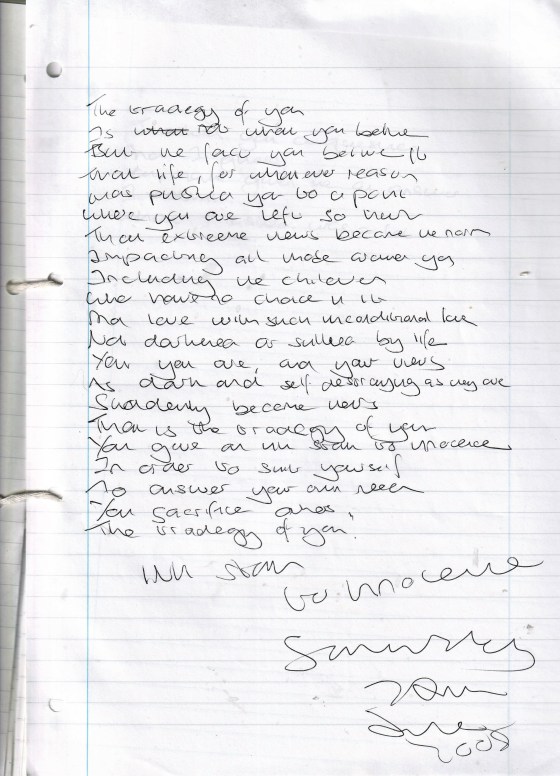 The tradegy of you
Is what not what you believe
But the fact you believe it
that life, for whatever reason
has pushed you to a point
where you are left so
That extreme views become the norm
Impacting all those around you
Including the children
who have no choice in it
And love with such unconditional love
Not darkened or sullied by life
Yet you are, and your views
As dark and self destroying as they are
Suddenly become
That is the tradegy of you
You give an ink stain to innocence
In order to suit yourself
To answer your own need
You sacrifice others.
The tradegy of you.
Ink stain
to innocence
Saturday
June
2005